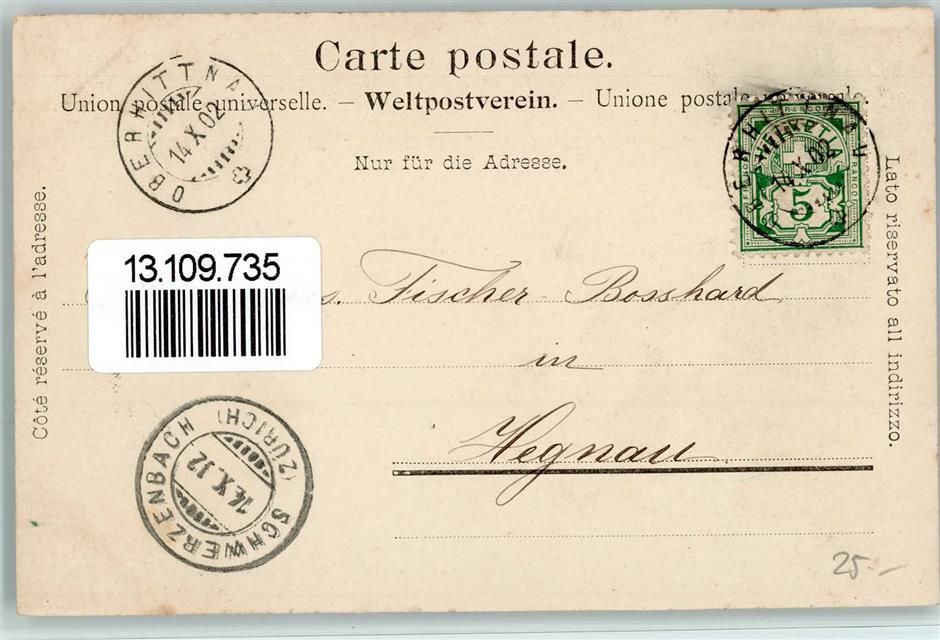 Carte postale.
Union postale universelle. — Weltpostverein. — Unione postale universale.
Nur für die Adresse.
OBERHITTNA
14 X 02
OBERHITTNAU
14 X 02
FRANCO
HELVETIA
5
Côté réservé à l'adresse.
Lato riservato all indirizzo.
13.109.735
s. Fischer-Bosshard
in
Hegnau
SCHWERZENBACH (ZÜRICH)
14. X. 12
25.-